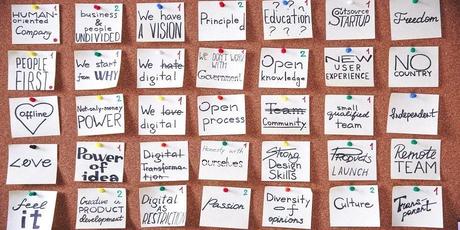 HUMAN-
oriented
Company
business &
people
UNDIVIDED
2
We have
A VISION
1
Principled
Education
? ? ? ?
Outsource
STARTUP
Freedom
PEOPLE
FIRST
We start
from WHY
We hate
digital
We DON'T WORK
with
Government
2
Open
knowledge
2
NEW
USER
EXPERIENCE
NO
COUNTRY
offline
Not-only-money
POWER
2
We love
digital
1
Open
process
Team
Community
1
small
qualified
team
Independent
Love
Power of
idea
1
Digital
Transforma-
tion
Honesty with
ourselves
Strong
Design
Skills
Products
LAUNCH
Remote
TEAM
feel
it
Creative in
PRODUCT
development
2
Digital
AS
RESTRICTION
Passion
2
Diversity
of
opinions
Culture
Trans-
parent